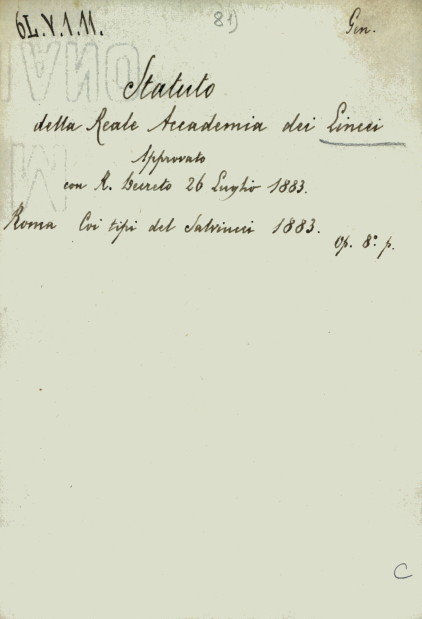 6L.V.1.11. 81) Gen.
Statuto
della Reale Accademia dei Lincei
Approvato
con R. Decreto 26 Luglio 1883.
Roma Coi tipi del Salviucci 1883.
Op. 8.° p.
C